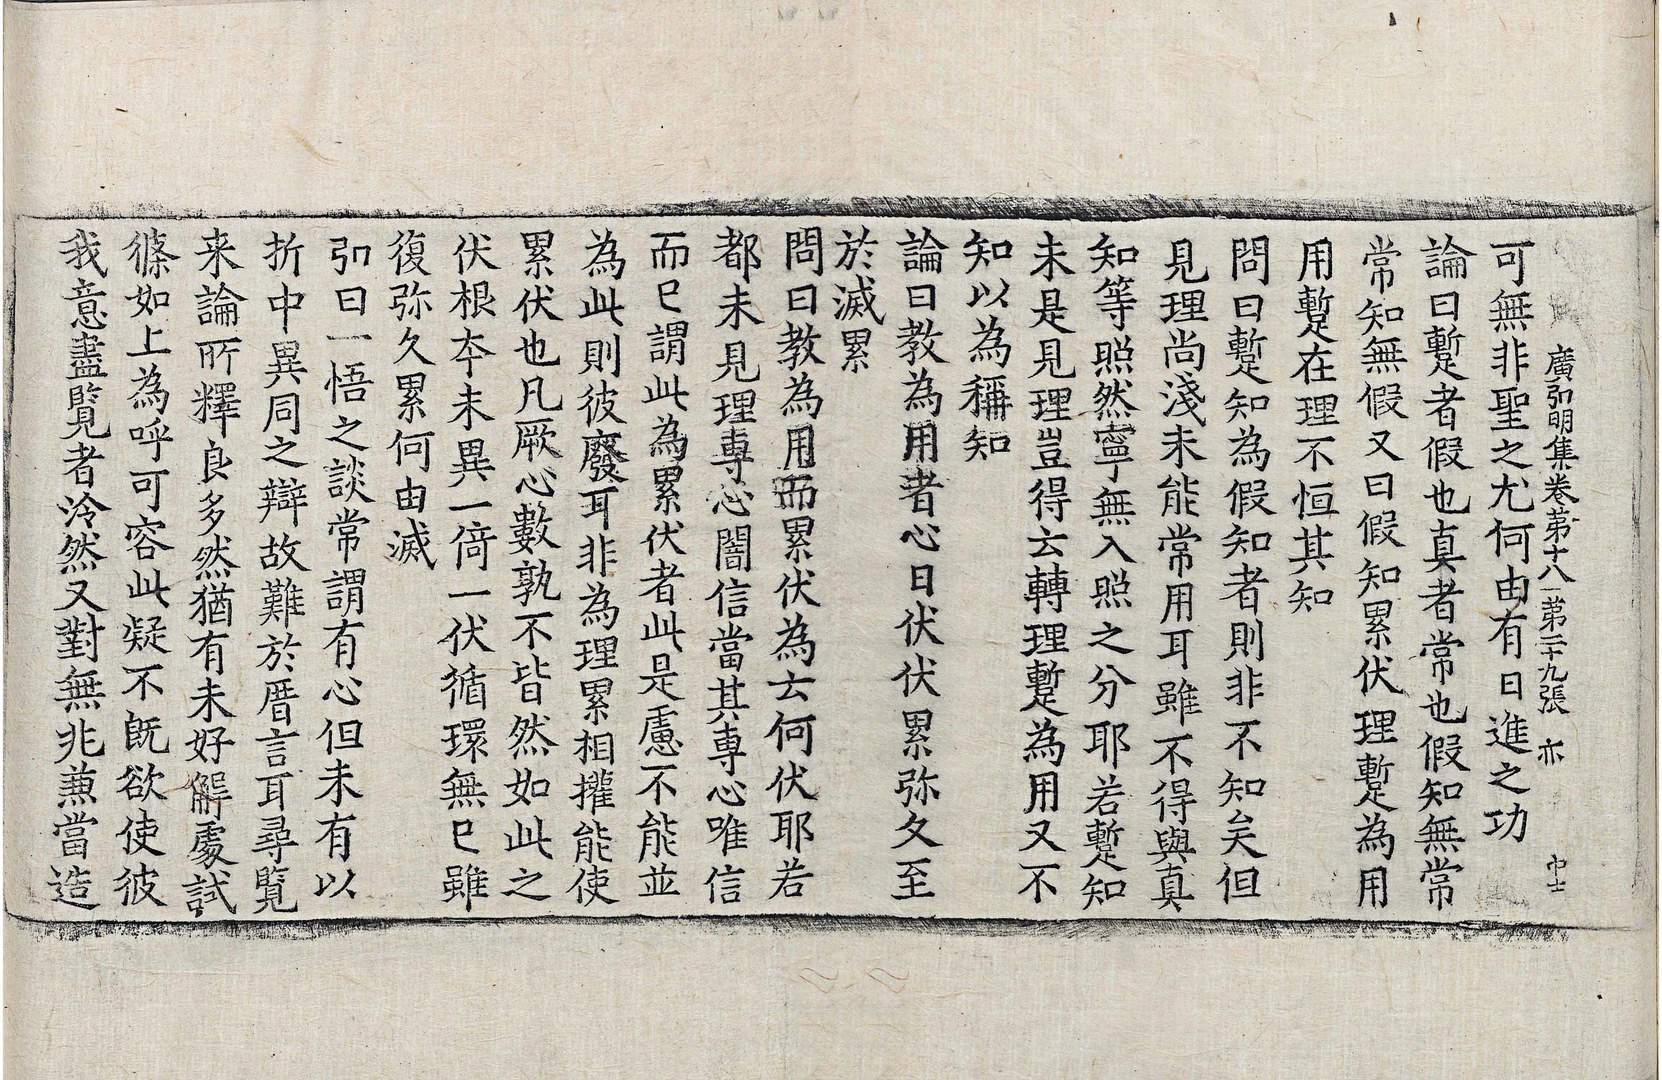 廣弘明集卷第十八 第二十九張 亦 中士
可無非聖之尤何由有日進之功
論曰蹔者假也真者常也假知無常
常知無假又曰假知累伏理蹔為用
用蹔在理不恒其知
問曰蹔知為假知者則非不知矣但
見理尚淺未能常用耳雖不得與真
知等照然寧無入照之分耶若蹔知
未是見理豈得云轉理蹔為用又不
知以為稱知
論曰教為用者心日伏伏累弥久至
於滅累
問曰教為用而累伏為云何伏耶若
都未見理專心闇信當其專心唯信
而已謂此為累伏者此是慮不能並
為此則彼廢耳非為理累相權能使
累伏也凡厥心數孰不皆然如此之
伏根夲未異一倚一伏循環無已雖
復弥久累何由滅
弘曰一悟之談常謂有心但未有以
折中異同之辯故難於厝言耳尋覽
来論所釋良多然猶有未好解處試
條如上為呼可容此疑不既欲使彼
我意盡覽者泠然又對無兆兼當造